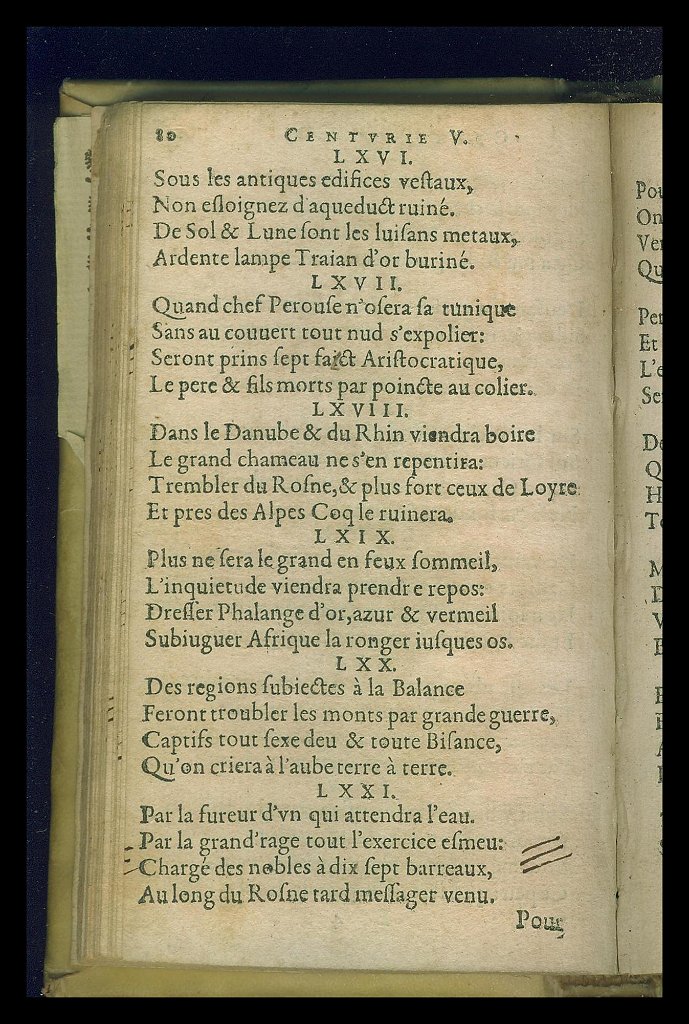 80 CENTVRIE V.
LXVI.
Sous les antiques edifices veſtaux,
Non eſloignez d'aqueduct ruiné.
De Sol & Lune ſont les luiſans metaux,
Ardente lampe Traian d'or buriné.
LXVII.
Quand chef Perouſe n'oſera ſa tunique
Sans au couuert tout nud s'expolier:
Seront prins ſept faict Ariſtocratique,
Le pere & fils morts par poincte au colier.
LXVIII.
Dans le Danube & du Rhin viendra boire
Le grand chameau ne s'en repentira:
Trembler du Roſne, & plus fort ceux de Loyre
Et pres des Alpes Coq le ruinera.
LXIX.
Plus ne ſera le grand en feux ſommeil,
L'inquietude viendra prendre repos:
Dreſſer Phalange d'or, azur & vermeil
Subiuguer Afrique la ronger iuſques os.
LXX.
Des regions ſubiectes à la Balance
Feront troubler les monts par grande guerre,
Captifs tout ſexe deu & toute Biſance,
Qu'on criera à l'aube terre à terre.
LXXI.
Par la fureur d'vn qui attendra l'eau.
Par la grand'rage tout l'exercice eſmeu:
Chargé des nobles à dix ſept barreaux,
Au long du Roſne tard meſſager venu.
Pour
Et